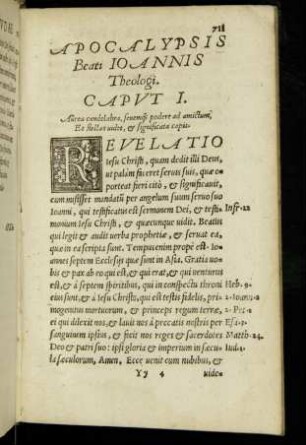 711
APOCALYPSIS
Beati IOANNIS
Theologi.
CAPVT I.
Aurea candelabra, ferentq́; podere ad amictum,
Et stellas videt, & significata capit.
REVELATIO
Iesu Christi, quam dedit illi Deus,
ut palàm faceret seruis suis, quæ o-
porteat fieri citò, & significauit,
cum misisset mandatũ per angelum suum seruo suo
Ioanni, qui testificatus est sermonem Dei, & testi-
monium Iesu Christi, & quæcunque uidit. Beatus
qui legit & audit uerba prophetiæ, & seruat ea,
quæ in ea scripta sunt. Tempus enim propè est. Io-
annes septem Ecclesijs quæ sunt in Asia. Gratia uo-
bis & pax ab eo qui est, & qui erat, & qui uenturus
est, & à septem spiritibus, qui in conspectu throni
eius sunt, & à Iesu Christo, qui est testis fidelis, pri-
mogenitus mortuorum, & princeps regum terræ,
ei qui dilexit nos, & lauit nos à peccatis nostris per
sanguinem ipsius, & fecit nos reges & sacerdotes
Deo & patri suo: ipsi gloria & imperium in sæcu-
la sæculorum, Amen. Ecce uenit cum nubibus, &
Infr. 22
Heb. 9.
1. Ioan. 1
1. Pet. 1
Esa.
Matth. 24.
Iud. 1
Yy 4
uide-